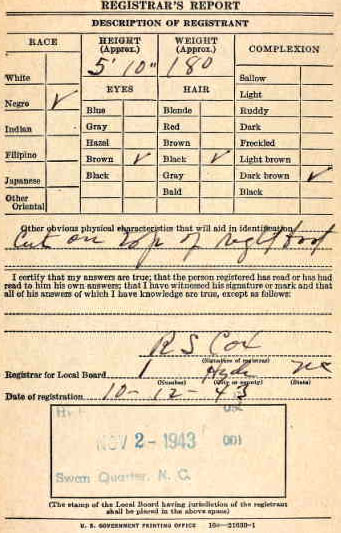 REGISTRAR'S REPORT
DESCRIPTION OF REGISTRANT
RACE
HEIGHT (Approx.)
WEIGHT (Approx.)
COMPLEXION
5' 10"
180
White
EYES
HAIR
Sallow
Light
Negro ✓
Blue
Blonde
Ruddy
Gray
Red
Dark
Indian
Hazel
Brown
Freckled
Filipino
Brown ✓
Black ✓
Light brown
Japanese
Black
Gray
Dark brown ✓
Other Oriental
Bald
Black
Other obvious physical characteristics that will aid in identification
Cut on top of right foot
I certify that my answers are true; that the person registered has read or has had
read to him his own answers; that I have witnessed his signature or mark and that
all of his answers of which I have knowledge are true, except as follows:
R S Cox
(Signature of registrar)
Registrar for Local Board 1 Hyde NC
(Number) (City or county) (State)
Date of registration 10-12-43
NOV 2-1943 001
Swan Quarter, N. C.
(The stamp of the Local Board having jurisdiction of the registrant
shall be placed in the above space)
U. S. GOVERNMENT PRINTING OFFICE 16—21630-1